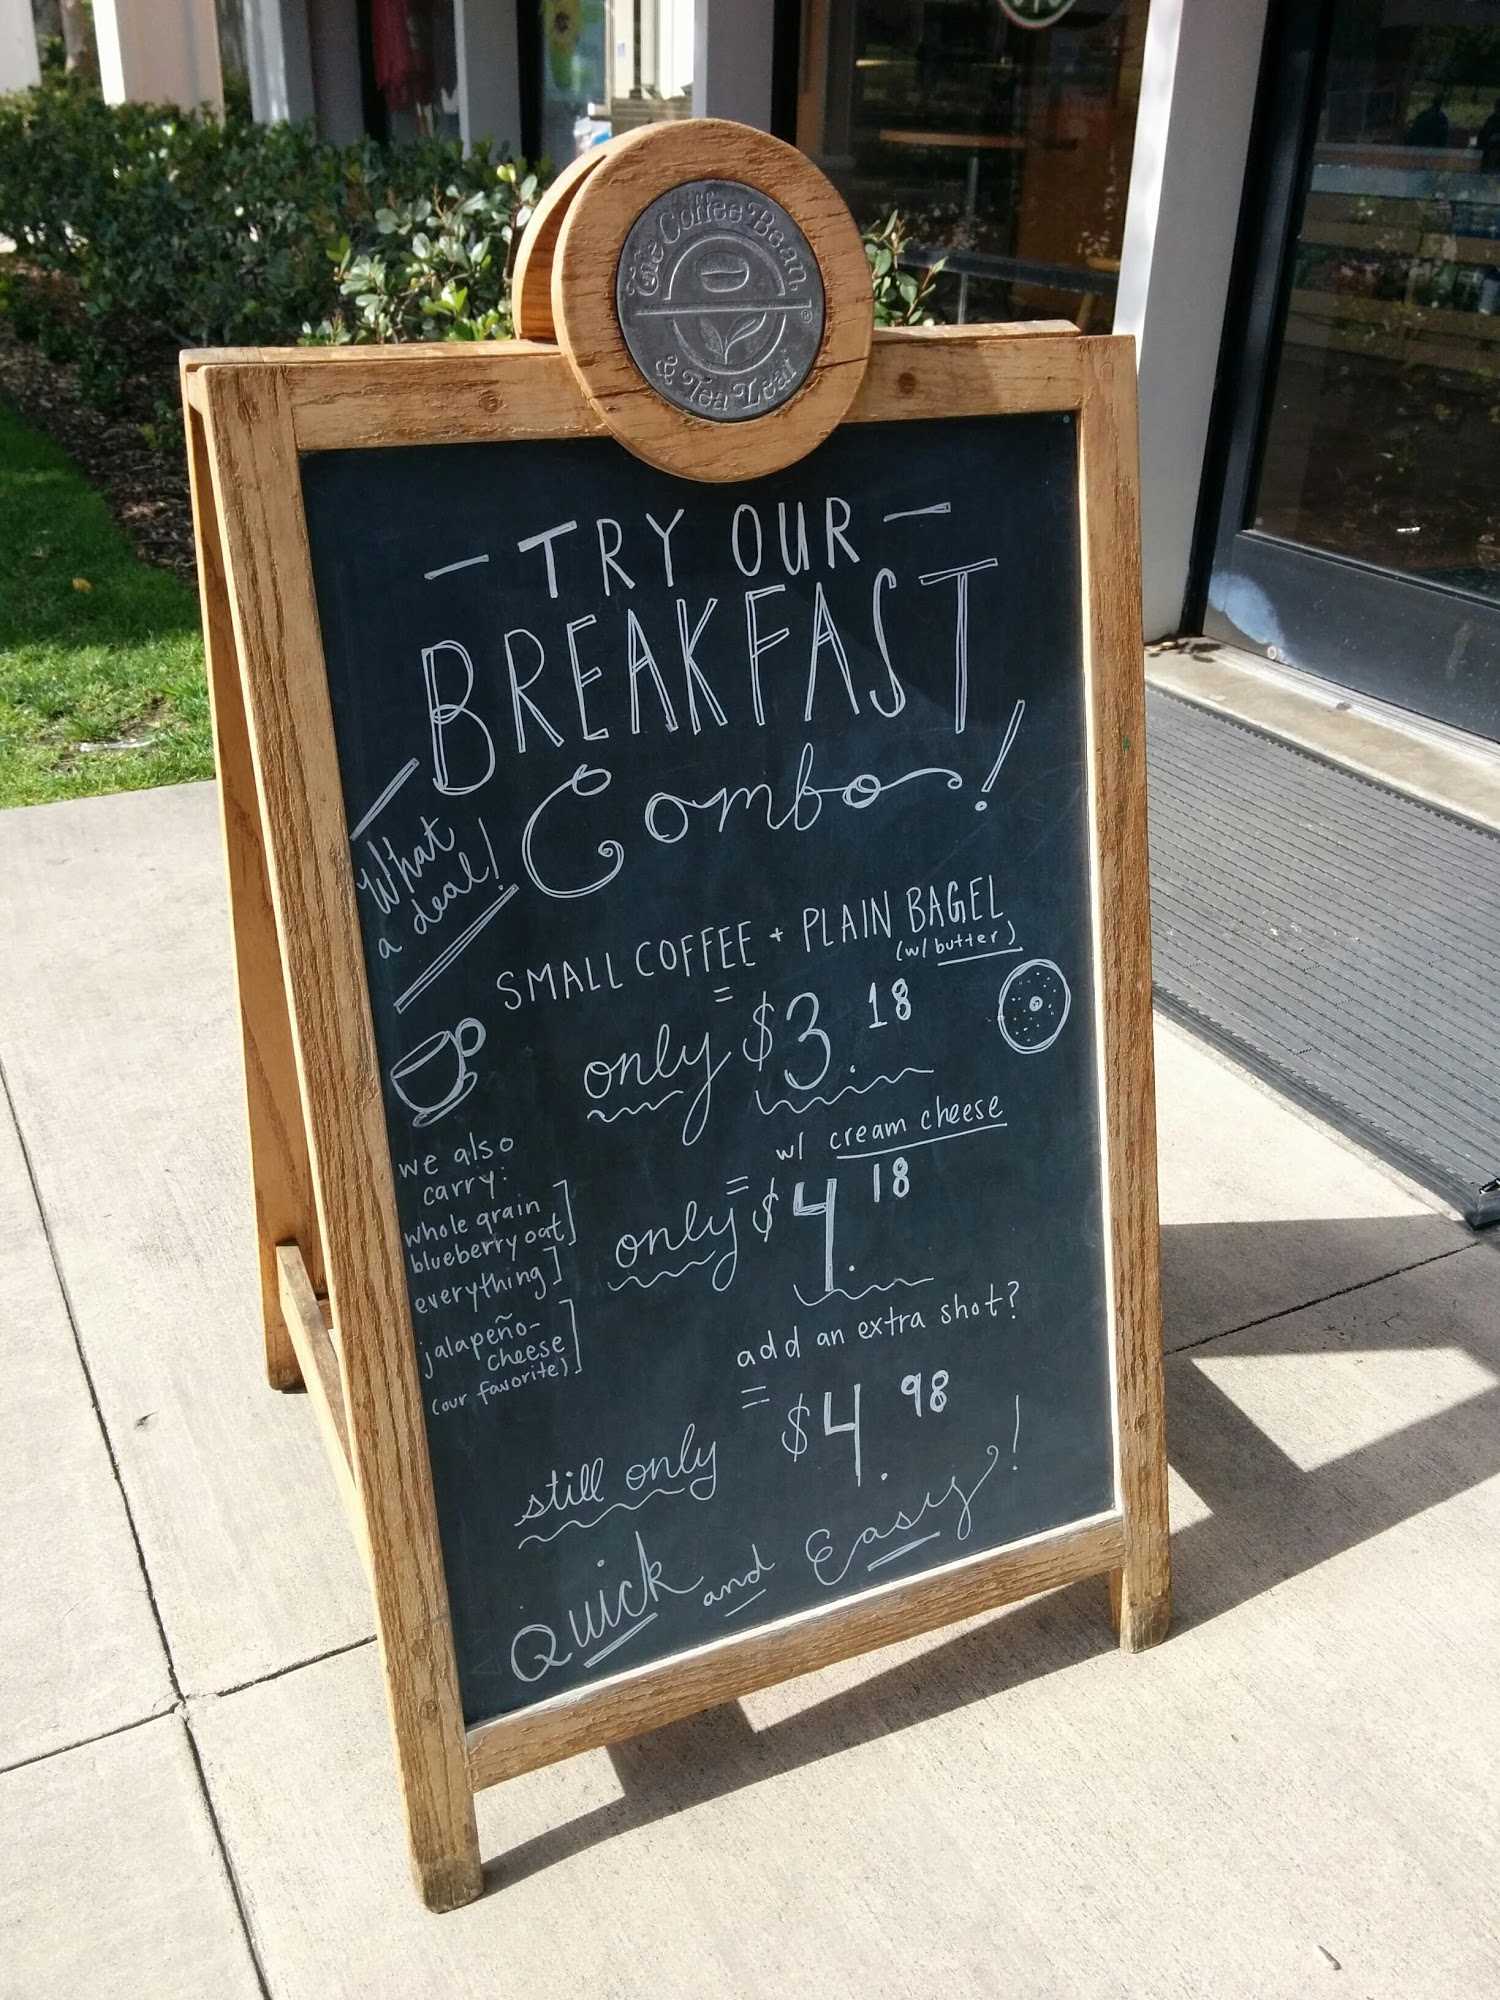 The Coffee Bean ®
& Tea Leaf
- TRY OUR -
BREAKFAST
Combo!
What
a deal!
SMALL COFFEE + PLAIN BAGEL
(w/ butter)
=
only $3.18
w/ cream cheese
=
only $4.18
we also
carry:
whole grain
blueberry oat]
everything]
jalapeño-
cheese
(our favorite)]
add an extra shot?
=
still only $4.98
Quick and Easy!